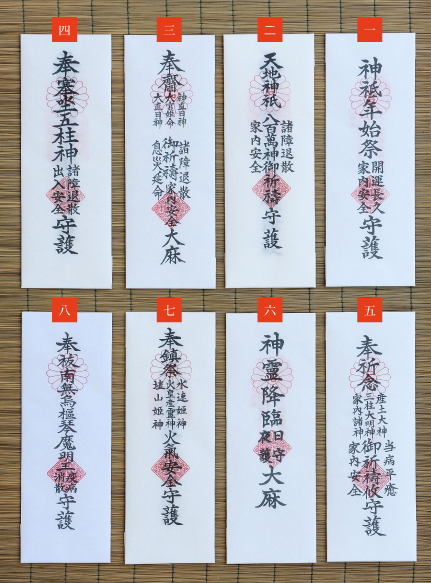 一
神祇年始祭
開運長久
家内安全
守護
二
天地神祇
八百萬神御祈禱
諸障退散
家内安全
守護
三
奉齋
神直日神
大宮姫命
大直日神
御祈禱
諸障退散
家内安全
息災延命
大麻
四
奉塞坐五柱神
諸障退散
出入安全
守護
五
奉祈念
産土大神
三柱大明神
家内諸神
御祈禱攸
当病平癒
家内安全
守護
六
神靈降臨
日守
夜護
大麻
七
奉鎮祭
水速姫神
火皇産靈神
埴山姫神
火氣安全守護
八
奉祓南無烏樞琴魔明王
疫病
消散
守護